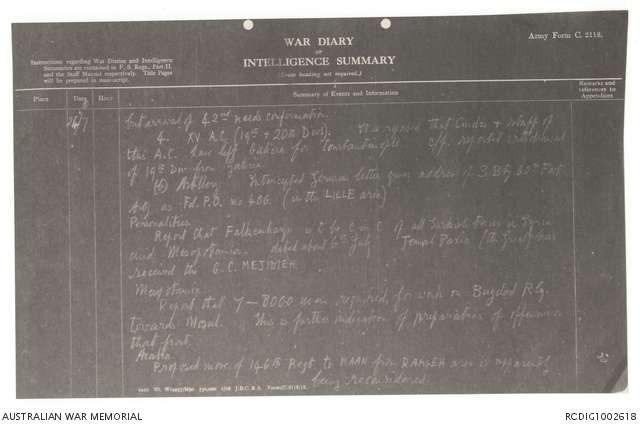 Army Form C. 2118.
WAR DIARY
or
INTELLIGENCE SUMMARY
(Erase heading not required.)
Instructions regarding War Diaries and Intelligence
Summaries are contained in F. S. Regs., Part II.
and the Staff Manual respectively. Title Pages
will be prepared in manuscript.
Place
Date
Hour
Summary of Events and Information
Remarks and
references to
Appendices
24/7
but arrival of 42nd needs confirmation.
4. XV A.C. (19th + 20th Divs). It is reported that Comdr + staff of
this A.C. have left Galicia for Constantinople. c/f. reported
of 19th Div from Galicia
Artillery. Intercepted German letter gives address of 3. Bty 60th
as Fd. P.O. no 406. (in the LILLE area)
Personalities
Report that Falkenhayn is to be C in C of all Turkish Forces in Syria
and Mesopotamia. dated about 6th July. Jemal Pasha has
received the G.C. MEJIDIEH.
Mesopotamia
Report that 7-8000 men required for work on Bagdad Rly.
towards Mosul. This is further indication of preparation of offensive on
that front.
Arabia
Proposed move of 146th Regt to MAAN from RAMLEH area is apparently
being reconsidered.
AUSTRALIAN WAR MEMORIAL
RCDIG1002618